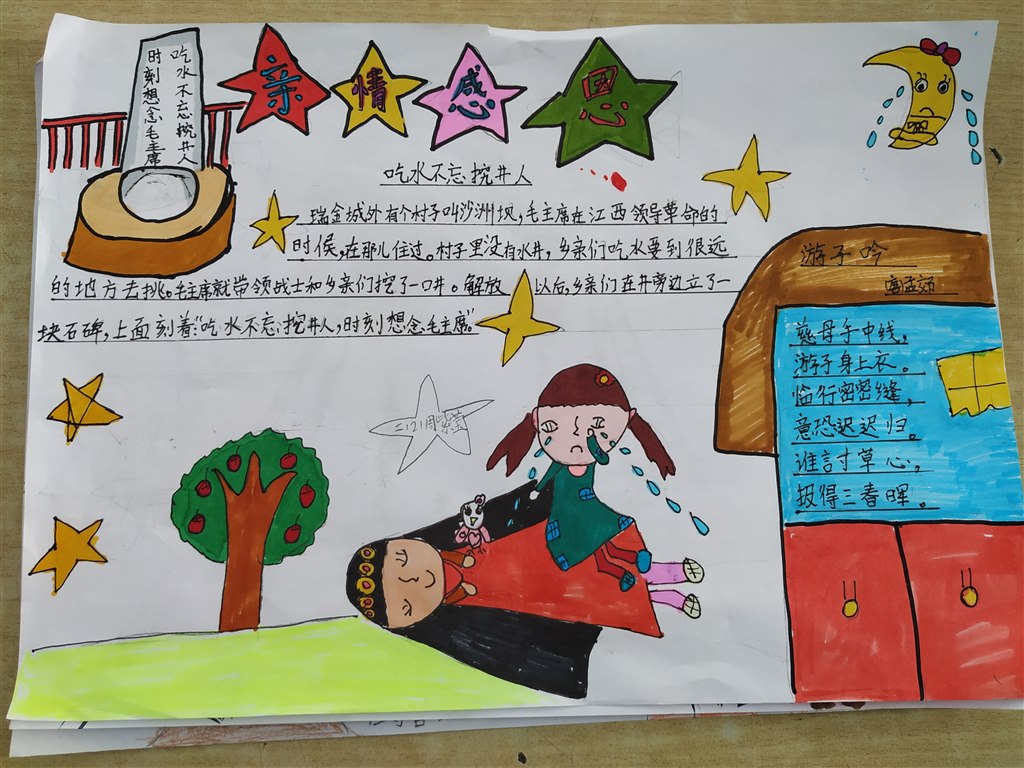 亲情感恩
吃水不忘挖井人
时刻想念毛主席
吃水不忘挖井人
瑞金城外有个村子叫沙洲坝,毛主席在江西领导革命的
时候,在那儿住过。村子里没有水井,乡亲们吃水要到很远
的地方去挑。毛主席就带领战士和乡亲们挖了一口井。解放以后,乡亲们在井旁边立了一
块石碑,上面刻着:“吃水不忘挖井人,时刻想念毛主席。”
游子吟
孟郊
慈母手中线,
游子身上衣。
临行密密缝,
意恐迟迟归。
谁讨草心,
报得三春晖。